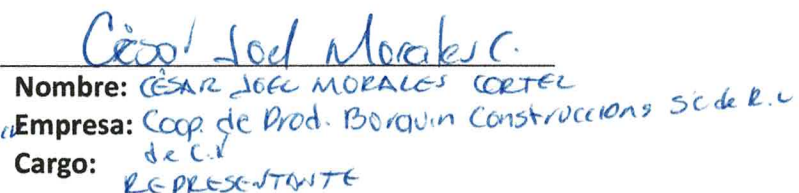 César Joel Morales C.
Nombre: CÉSAR JOEL MORALES CORTEZ
Empresa: Coop. de Prod. Borquin Construccions SC de R.L
de C.V
Cargo:
REPRESENTANTE